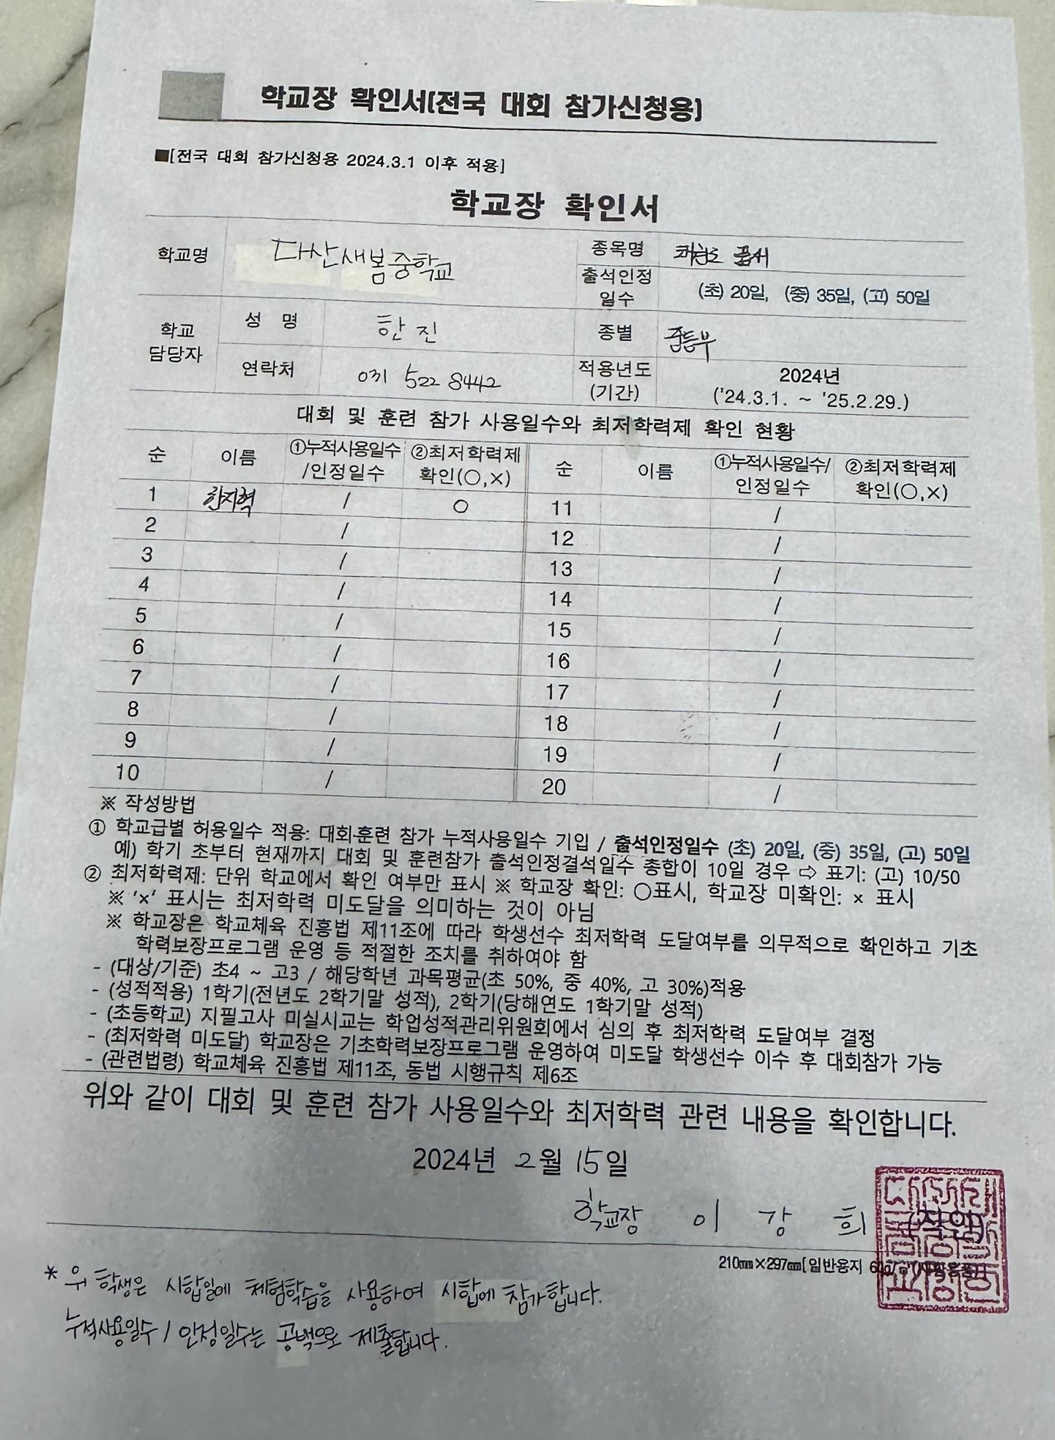 학교장 확인서(전국 대회 참가신청용)
■[전국 대회 참가신청용 2024.3.1 이후 적용]
학교장 확인서
학교명 다산새봄중학교 종목명
출석인정 일수 (초) 20일, (중) 35일, (고) 50일
학교 담당자 성 명 한 진 종별 중등부
연락처 031 522 8442 적용년도 (기간) 2024년 ('24.3.1. ~ '25.2.29.)
대회 및 훈련 참가 사용일수와 최저학력제 확인 현황
순 이름 ①누적사용일수/인정일수 ②최저학력제 확인(○,×) 순 이름 ①누적사용일수/인정일수 ②최저학력제 확인(○,×)
1 한지혁 / ○ 11 /
2 / 12 /
3 / 13 /
4 / 14 /
5 / 15 /
6 / 16 /
7 / 17 /
8 / 18 /
9 / 19 /
10 / 20 /
※ 작성방법
① 학교급별 허용일수 적용: 대회·훈련 참가 누적사용일수 기입 / 출석인정일수 (초) 20일, (중) 35일, (고) 50일
예) 학기 초부터 현재까지 대회 및 훈련참가 출석인정결석일수 총합이 10일 경우 ⇨ 표기: (고) 10/50
② 최저학력제: 단위 학교에서 확인 여부만 표시 ※ 학교장 확인: ○표시, 학교장 미확인: × 표시
※ '×' 표시는 최저학력 미도달을 의미하는 것이 아님
※ 학교장은 학교체육 진흥법 제11조에 따라 학생선수 최저학력 도달여부를 의무적으로 확인하고 기초
학력보장프로그램 운영 등 적절한 조치를 취하여야 함
- (대상/기준) 초4 ~ 고3 / 해당학년 과목평균(초 50%, 중 40%, 고 30%)적용
- (성적적용) 1학기(전년도 2학기말 성적), 2학기(당해연도 1학기말 성적)
- (초등학교) 지필고사 미실시교는 학업성적관리위원회에서 심의 후 최저학력 도달여부 결정
- (최저학력 미도달) 학교장은 기초학력보장프로그램 운영하여 미도달 학생선수 이수 후 대회참가 가능
- (관련법령) 학교체육 진흥법 제11조, 동법 시행규칙 제6조
위와 같이 대회 및 훈련 참가 사용일수와 최저학력 관련 내용을 확인합니다.
2024년 2월 15일
학교장 이 강 희 (직인)
210㎜×297㎜[일반용지
* 위 학생은 시합일에 체험학습을 사용하여 시합에 참가합니다.
누적사용일수 / 인정일수는 공백으로 제출합니다.